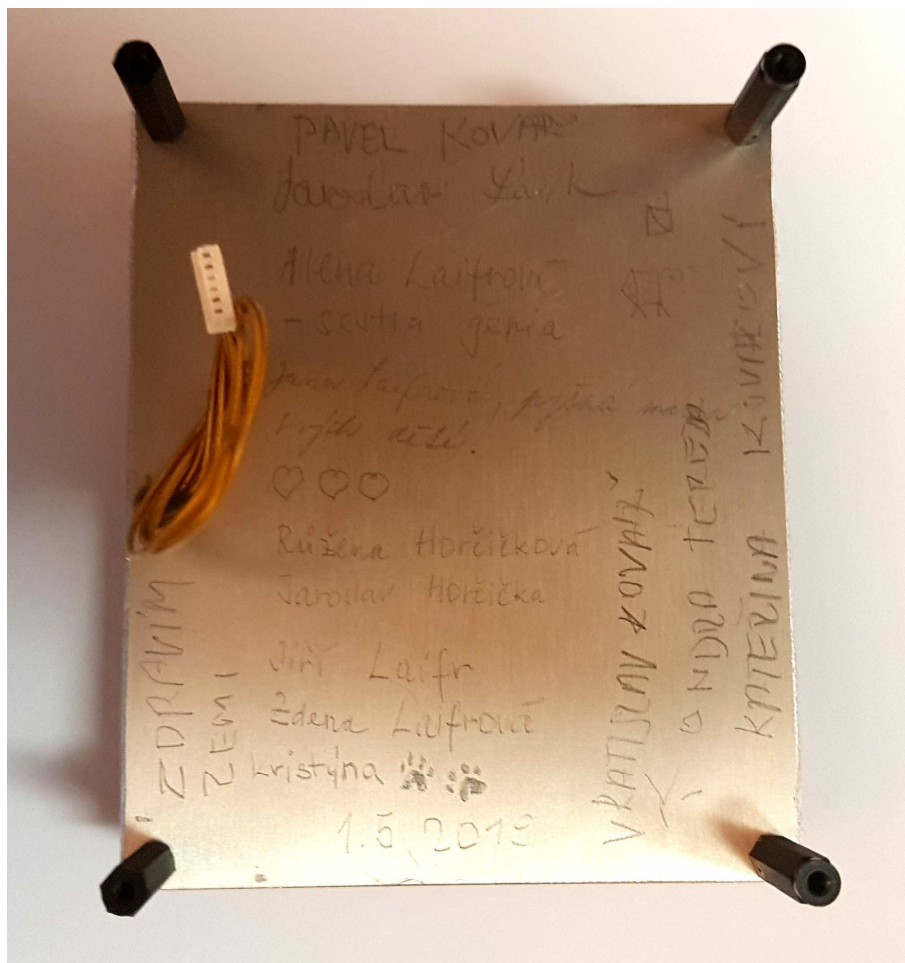 PAVEL KOVAŘ
Jaroslav
Alena Laifrová
- sestra génia
Jana Laifrová, pyšná mama
svých dětí.
Růžena Horčičková
Jaroslav Horčička
Jiří Laifr
Zdena Laifrová
Kristýna
1.5.2019
ZDRAVÍM
ZEMI
VRATISLAV KOVAŘ
ONDRA
KATEŘINA KOVAŘOVÁ